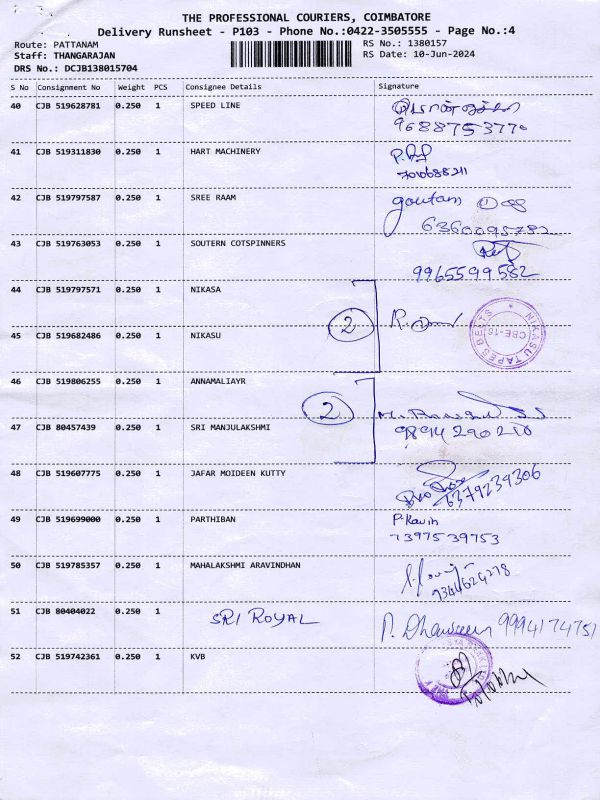 THE PROFESSIONAL COURIERS, COIMBATORE
Delivery Runsheet - P103 - Phone No.:0422-3505555 - Page No.:4
Route: PATTANAM
RS No.: 1380157
Staff: THANGARAJAN
RS Date: 10-Jun-2024
DRS No.: DCJB138015704
S No Consignment No Weight PCS Consignee Details Signature
40 CJB 519628781 0.250 1 SPEED LINE
9688753770
41 CJB 519311830 0.250 1 HART MACHINERY
42 CJB 519797587 0.250 1 SREE RAAM goutam
6360095782
43 CJB 519763053 0.250 1 SOUTERN COTSPINNERS
9965599582
44 CJB 519797571 0.250 1 NIKASA
2
NIKASU TAPES BELTS
CBE-18
45 CJB 519682486 0.250 1 NIKASU
46 CJB 519806255 0.250 1 ANNAMALIAYR
2
47 CJB 80457439 0.250 1 SRI MANJULAKSHMI
9894290210
48 CJB 519607775 0.250 1 JAFAR MOIDEEN KUTTY
6379239306
49 CJB 519699000 0.250 1 PARTHIBAN P. Kavin
7397539753
50 CJB 519785357 0.250 1 MAHALAKSHMI ARAVINDHAN
51 CJB 80404022 0.250 1 SRI ROYAL
9994174751
52 CJB 519742361 0.250 1 KVB